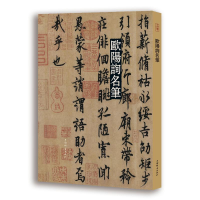 指薪脩祜永綏吉劭矩步
引領俯仰廊廟束帶矜
莊徘徊瞻眺孤陋寡聞
愚蒙等誚謂語助者焉
哉乎也
歐陽詢名筆
歐陽詢名筆